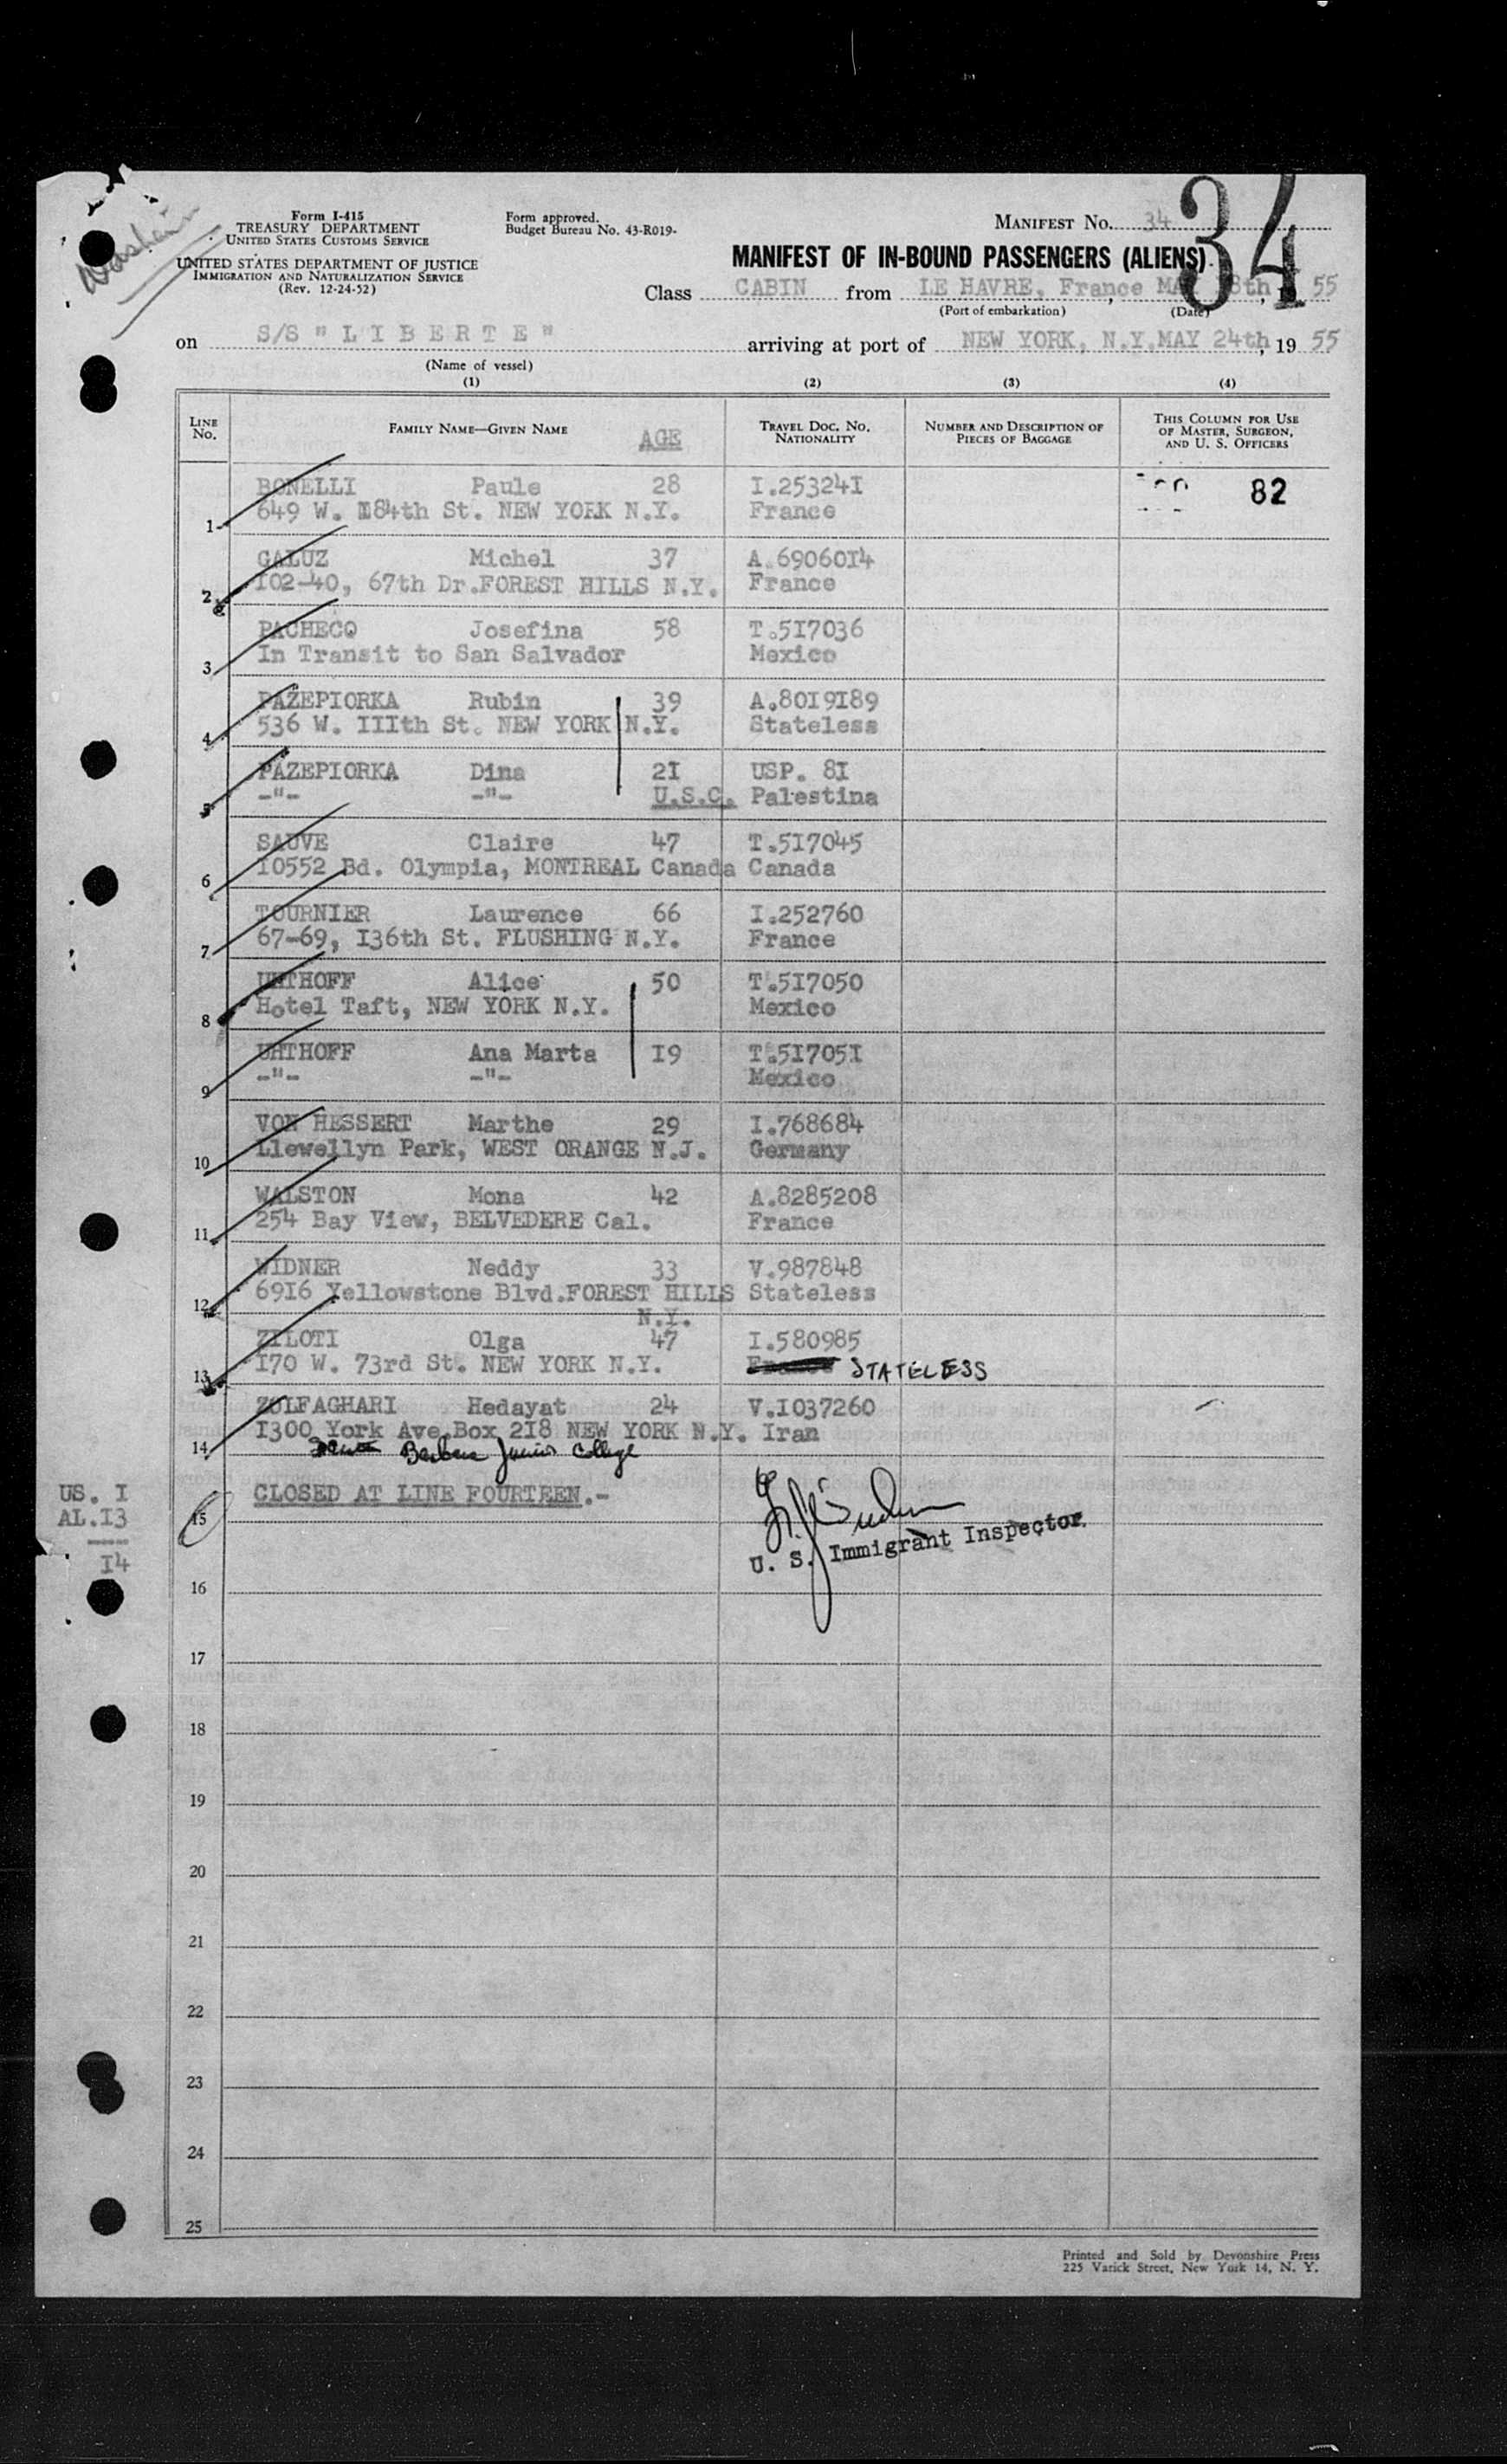 34
Form I-415
TREASURY DEPARTMENT
UNITED STATES CUSTOMS SERVICE
UNITED STATES DEPARTMENT OF JUSTICE
IMMIGRATION AND NATURALIZATION SERVICE
(Rev. 12-24-52)
Form approved.
Budget Bureau No. 43-R019-
MANIFEST No. 34
MANIFEST OF IN-BOUND PASSENGERS (ALIENS)
Class CABIN from LE HAVRE, France, MAY 8th, 19 55
(Port of embarkation) (Date)
on S/S "LIBERTE" arriving at port of NEW YORK, N.Y. MAY 24th, 19 55
(Name of vessel)
(1) (2) (3) (4)
LINE No. FAMILY NAME—GIVEN NAME AGE TRAVEL DOC. NO. NATIONALITY NUMBER AND DESCRIPTION OF PIECES OF BAGGAGE THIS COLUMN FOR USE OF MASTER, SURGEON, AND U. S. OFFICERS
BONELLI Paule 28 I.25324I 82
1 649 W. I84th St. NEW YORK N.Y. France
GALUZ Michel 37 A.6906OI4
2 I02-40, 67th Dr.FOREST HILLS N.Y. France
PACHECO Josefina 58 T.5I7036
3 In Transit to San Salvador Mexico
PAZEPIORKA Rubin 39 A.80I9I89
4 536 W. IIIth St. NEW YORK N.Y. Stateless
PAZEPIORKA Dina 2I USP. 8I
5 -"- -"- U.S.C. Palestina
SAUVE Claire 47 T.5I7045
6 I0552 Bd. Olympia, MONTREAL Canada Canada
TOURNIER Laurence 66 I.252760
7 67-69, I36th St. FLUSHING N.Y. France
UHTHOFF Alice 50 T.5I7050
8 Hotel Taft, NEW YORK N.Y. Mexico
UHTHOFF Ana Marta I9 T.5I705I
9 -"- -"- Mexico
VON HESSERT Marthe 29 I.768684
10 Llewellyn Park, WEST ORANGE N.J. Germany
WALSTON Mona 42 A.8285208
11 254 Bay View, BELVEDERE Cal. France
WIDNER Neddy 33 V.987848
12 69I6 Yellowstone Blvd.FOREST HILLS Stateless
N.Y.
ZILOTI Olga 47 I.580985
13 I70 W. 73rd St. NEW YORK N.Y. France STATELESS
ZOLFAGHARI Hedayat 24 V.I037260
14 I300 York Ave.Box 2I8 NEW YORK N.Y. Iran
Barbara Junior College
US. I
AL.I3
I4
15 CLOSED AT LINE FOURTEEN.-
U. S. Immigrant Inspector
16
17
18
19
20
21
22
23
24
25
Printed and Sold by Devonshire Press
225 Varick Street, New York 14, N. Y.